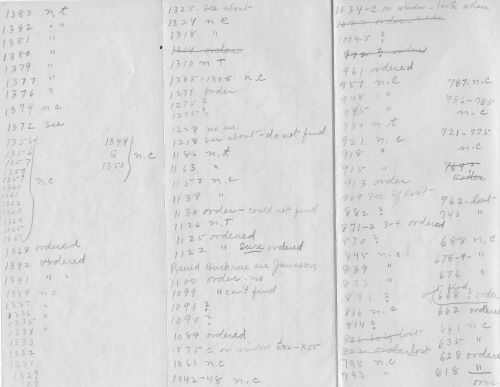 1383 n.t
1382 " "
1381 "
1380 "
1379 "
1377 "
1376 "
1374 n.c
1372 see
1358
1357
1360
1361
1362
1363
1364
1365
1367
n.c
1344
to
1350
n.c
1368 ordered
1342 ordered
1341 " "
1339 n.c
1337 "
1336 "
1335 "
1334 "
1333
1332
1331
1329
1325 - See about
1324 n c
1318 "
1314 order
1310 n T
1305-1308 n.c
1277 order
1275 ?
1273 "
1228 no au.
1218 see about - do not find
1186 n.t
1163 "
1152 n.c
1139 "
1130 order - could not find
1126 n.T
1125 ordered
1122 " Sure ordered
Preud Buckrose see Jameson
1100 order - no
1099 " can't find
1091 ?
1090 ?
1089 ordered
1075 C on window 292-K55
1061 n.c
1042-48 n.c
1034-C. on window - books where
1004-5 ?
972 ? ordered
961 ordered
957 n.c
948 "
945 "
939 n.t
921 n.c
918 "
915 "
913 order
909 see if lost
882 ?
871-2 3-4 ordered
870 ?
845 n.c
839 "
833 "
831 ?
816 n.c
814 ?
822 order lost
798 n.c
793 "
787 n.c
786-785
n.c
721-775
n.c
order
762-lost
740 "
688 n.c
678-9- "
676 "
can't find
668 ? order
662 ordered
641 n.c
635 "
628 ordered
618 "